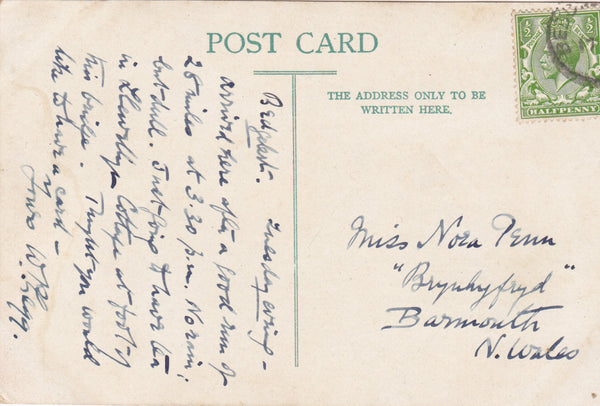 POST CARD
THE ADDRESS ONLY TO BE
WRITTEN HERE.
½ ½
HALFPENNY
Tuesday evening -
arrived here after a good run of
28 miles at 3.30 p.m. No rain;
but dull. Just going to have tea
in Llewellyn Cottage at foot of
this bridge. Thought you would
like to have a card -
Yours
Miss Nora Penn
"Brynhyfryd"
Barmouth
N. Wales